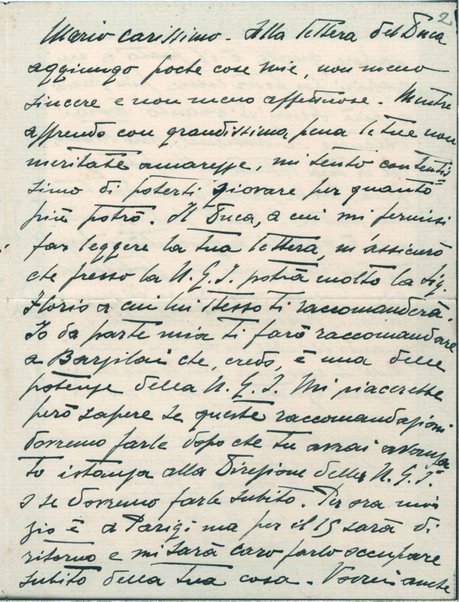 2
Mario carissimo - Alla lettera del Duca
aggiungo poche cose mie, non meno
sincere e non meno affettuose. Mentre
apprendo con grandissima pena le tue non
meritate amarezze, mi sento contentis
simo di poterti giovare per quanto
più potrò. Il Duca, a cui mi permisi
far leggere la tua lettera, m'assicurò
che presso la N.G.I. potrà molto la Sig.
Florio a cui lui stesso ti raccomanderà.
Io da parte mia ti farò raccomandare
a Barzilai che, credo, è una delle
potenze della N.G.I. Mi piacerebbe
però sapere se queste raccomandazioni
dovremo farle dopo che tu avrai avanza
to istanza alla Direzione della N.G.I.
o se dovremo farle subito. Per ora mio
zio è a Parigi ma per il 15 sarà di
ritorno e mi sarà caro farlo occupare
subito della tua cosa. Vorrei anche